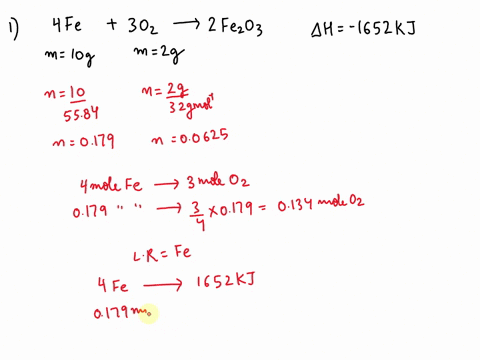 1) 4Fe + 3O₂ ⟶ 2Fe₂O₃ ΔH = -1652KJ
m=10g m=2g
n=10/55.84 n=2g/32gmol⁻¹
n=0.179 n=0.0625
4 mole Fe ⟶ 3 mole O₂
0.179 " " ⟶ 3/4 × 0.179 = 0.134 mole O₂
L.R = Fe
4 Fe ⟶ 1652KJ
0.179 mo